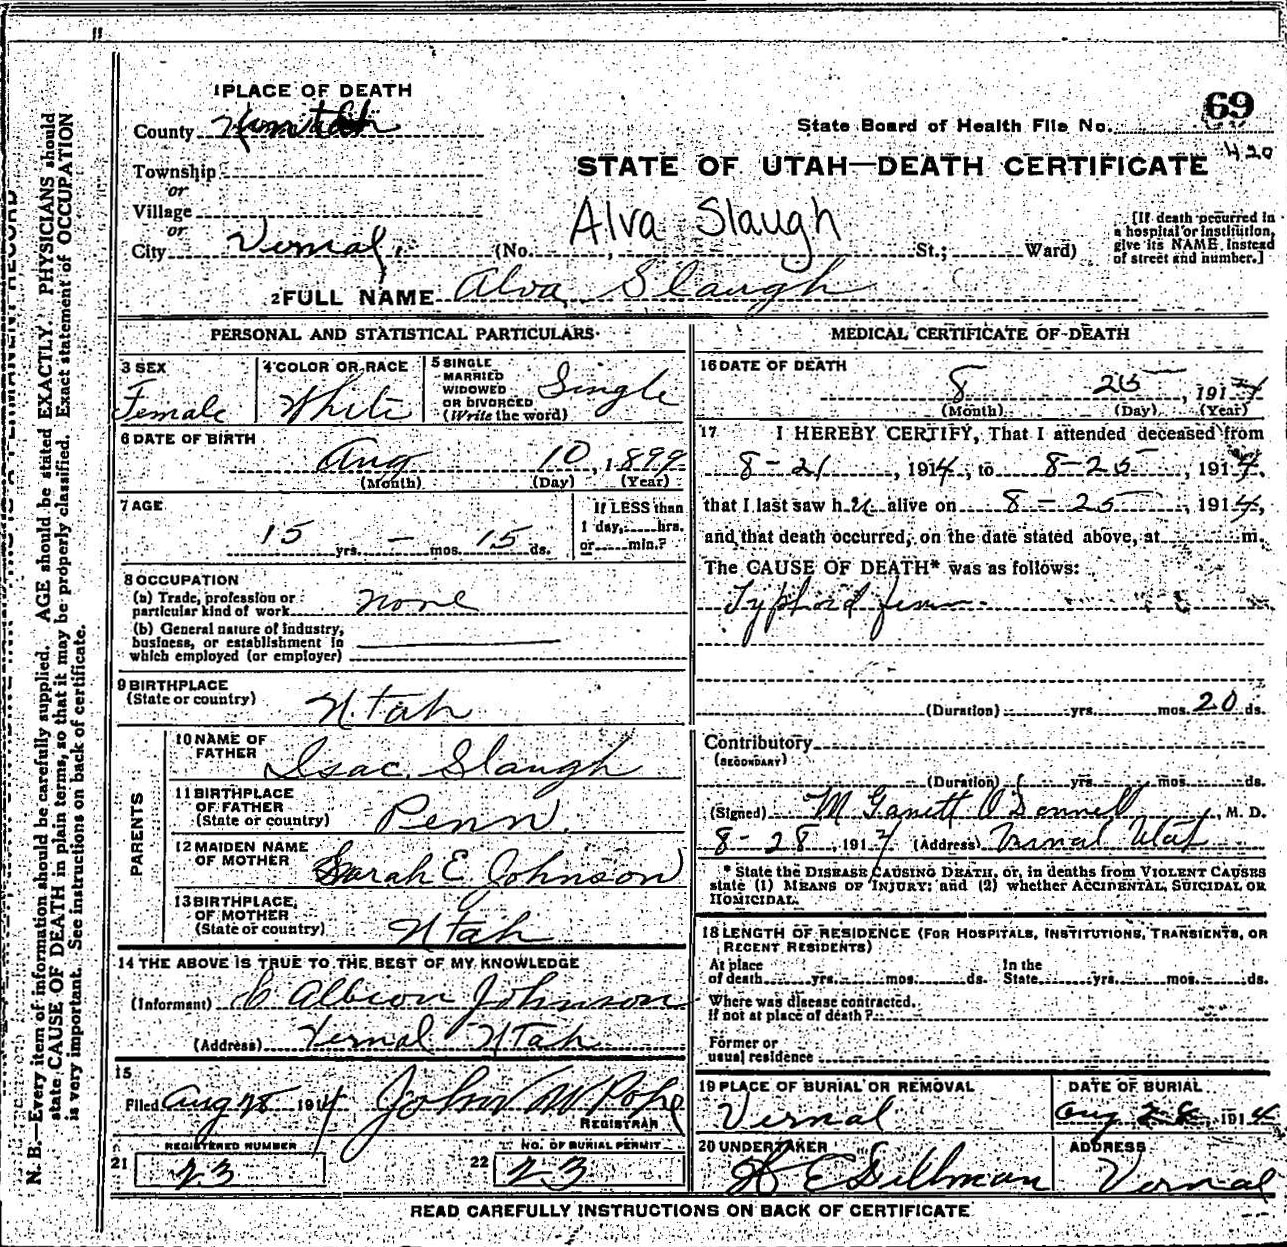 1 PLACE OF DEATH
County
State Board of Health File No. 69
420
Township
or
Village
or
City Vernal, (No. , St.; Ward)
STATE OF UTAH—DEATH CERTIFICATE
Alva Slaugh
[If death occurred in
a hospital or institution,
give its NAME instead
of street and number.]
2 FULL NAME Alva Slaugh
PERSONAL AND STATISTICAL PARTICULARS
3 SEX
Female
4 COLOR OR RACE
White
5 SINGLE
MARRIED
WIDOWED
OR DIVORCED
(Write the word)
Single
6 DATE OF BIRTH
Aug 10, 1899
(Month) (Day) (Year)
7 AGE
15 yrs. — mos. 15 ds.
If LESS than
1 day, hrs.
or min.?
8 OCCUPATION
(a) Trade, profession or
particular kind of work none
(b) General nature of industry,
business, or establishment in
which employed (or employer)
9 BIRTHPLACE
(State or country) Utah
PARENTS
10 NAME OF
FATHER Isac Slaugh
11 BIRTHPLACE
OF FATHER
(State or country) Penn.
12 MAIDEN NAME
OF MOTHER Sarah E. Johnson
13 BIRTHPLACE
OF MOTHER
(State or country) Utah
14 THE ABOVE IS TRUE TO THE BEST OF MY KNOWLEDGE
(Informant) C Albion Johnson
(Address) Vernal Utah
15
Filed Aug 28 1914 John W Pope
REGISTRAR
REGISTERED NUMBER
21 23
NO. OF BURIAL PERMIT
22 23
MEDICAL CERTIFICATE OF DEATH
16 DATE OF DEATH
8 25, 1914
(Month) (Day) (Year)
17 I HEREBY CERTIFY, That I attended deceased from
8-21, 1914, to 8-25, 1914,
that I last saw her alive on 8-25, 1914,
and that death occurred, on the date stated above, at m.
The CAUSE OF DEATH* was as follows:
Typhoid fever
(Duration) yrs. mos. 20 ds.
Contributory
(SECONDARY)
(Duration) yrs. mos. ds.
(Signed) M Garrett O'Donnell, M. D.
8-28, 1914 (Address) Vernal Utah
* State the DISEASE CAUSING DEATH, or, in deaths from VIOLENT CAUSES
state (1) MEANS OF INJURY; and (2) whether ACCIDENTAL, SUICIDAL OR
HOMICIDAL.
18 LENGTH OF RESIDENCE (FOR HOSPITALS, INSTITUTIONS, TRANSIENTS, OR
RECENT RESIDENTS)
At place
of death yrs. mos. ds.
In the
State yrs. mos. ds.
Where was disease contracted,
If not at place of death?
Former or
usual residence
19 PLACE OF BURIAL OR REMOVAL
Vernal
DATE OF BURIAL
Aug 28, 1914
20 UNDERTAKER
W E Dillman
ADDRESS
Vernal
READ CAREFULLY INSTRUCTIONS ON BACK OF CERTIFICATE
N. B.—Every item of information should be carefully supplied. AGE should be stated EXACTLY. PHYSICIANS should
state CAUSE OF DEATH in plain terms, so that it may be properly classified. Exact statement of OCCUPATION
is very important. See instructions on back of certificate.